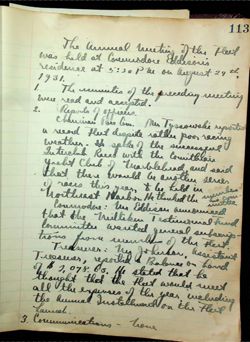 113
The Annual Meeting of the Fleet
was held at Commodore Ellison's
residence at 5:30 P.M. on August 29th,
1931.
1. The minutes of the preceding meeting
were read and accepted.
2. Reports of officers.
Chairman Mr. Tyszkowski reported
a record Fleet despite rather poor racing
weather. He spoke of the successful
Interclub Race with the Corinthian
Yacht Club of Marblehead, and said
that there would be another series
of races this year, to be held in
Northeast Harbor. He thanked the members
Commodore: Mr. Ellison announced
that the Milliken Testimonial Fund
Committee wanted general subscrip-
tions from members of the Fleet.
Treasurer: Mr. Johnson, Assistant
Treasurer, reported a Balance on hand
of $ He stated that he
thought that the Fleet would meet
all the expenses of the year, including
the Annual Installment on the Fleet
Launch.
3. Communications - None